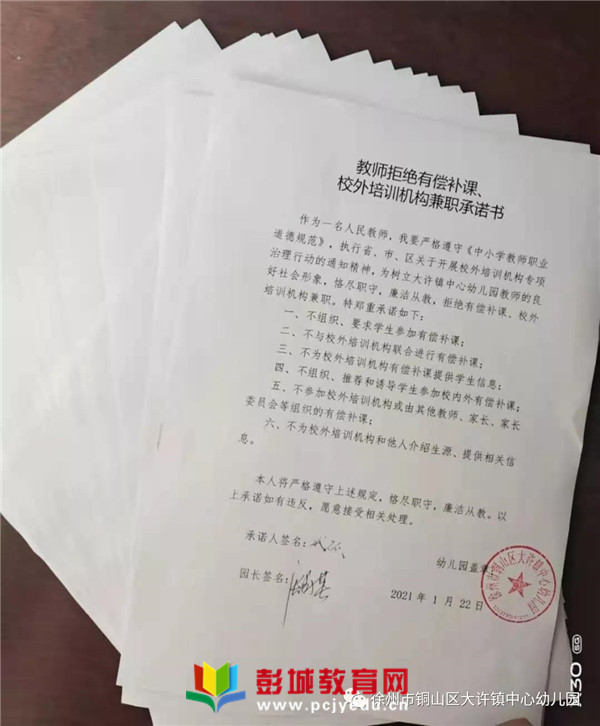 教师拒绝有偿补课、
校外培训机构兼职承诺书
作为一名人民教师，我要严格遵守《中小学教师职业
道德规范》，执行省、市、区关于开展校外培训机构专项
治理行动的通知精神，为树立大许镇中心幼儿园教师的良
好社会形象，恪尽职守，廉洁从教，拒绝有偿补课、校外
培训机构兼职。特郑重承诺如下：
一、不组织、要求学生参加有偿补课；
二、不与校外培训机构联合进行有偿补课；
三、不为校外培训机构有偿补课提供学生信息；
四、不组织、推荐和诱导学生参加校内外有偿补课；
五、不参加校外培训机构或由其他教师、家长、家长
委员会等组织的有偿补课；
六、不为校外培训机构和他人介绍生源、提供相关信
息。
本人将严格遵守上述规定，恪尽职守，廉洁从教。以
上承诺如有违反，愿意接受相关处理。
承诺人签名：
幼儿园盖章
园长签名：
2021 年 1 月 22 日
徐州市铜山区大许镇中心幼儿园
彭城教育网
www.pcjyedu.cn
徐州市铜山区大许镇中心幼儿园
5G